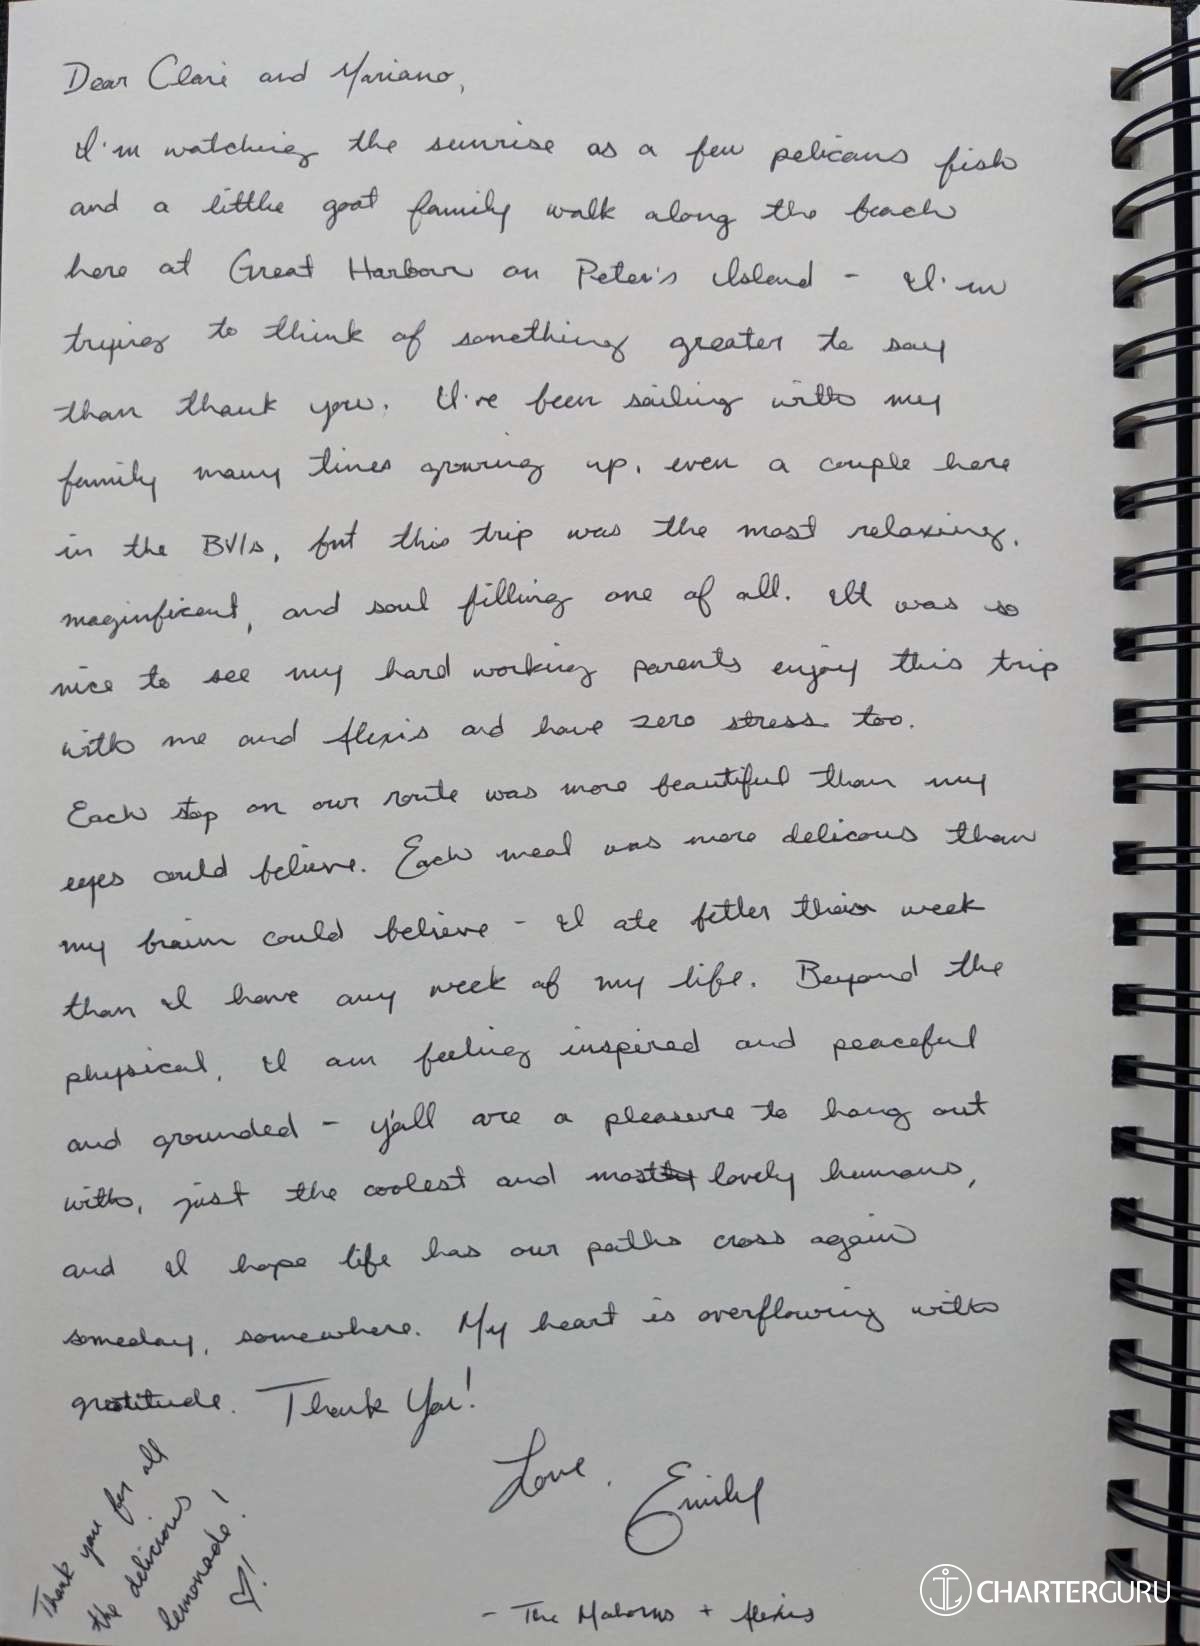 Dear Clare and Mariano,
I'm watching the sunrise as a few pelicans fish
and a little goat family walk along the beach
here at Great Harbour on Peter's Island - I'm
trying to think of something greater to say
than thank you. I've been sailing with my
family many times growing up, even a couple here
in the BVIs, but this trip was the most relaxing,
maginficent, and soul filling one of all. It was so
nice to see my hard working parents enjoy this trip
with me and Alexis and have zero stress too.
Each stop on our route was more beautiful than my
eyes could believe. Each meal was more delicous than
my brain could believe - I ate better this week
than I have any week of my life. Beyond the
physical, I am feeling inspired and peaceful
and grounded - y'all are a pleasure to hang out
with, just the coolest and lovely humans,
and I hope life has our paths cross again
someday, somewhere. My heart is overflowing with
gratitude. Thank You!
Love, Emily
Thank you for all
the delicious
lemonade!
♡!
- The + Alexis
CHARTERGURU